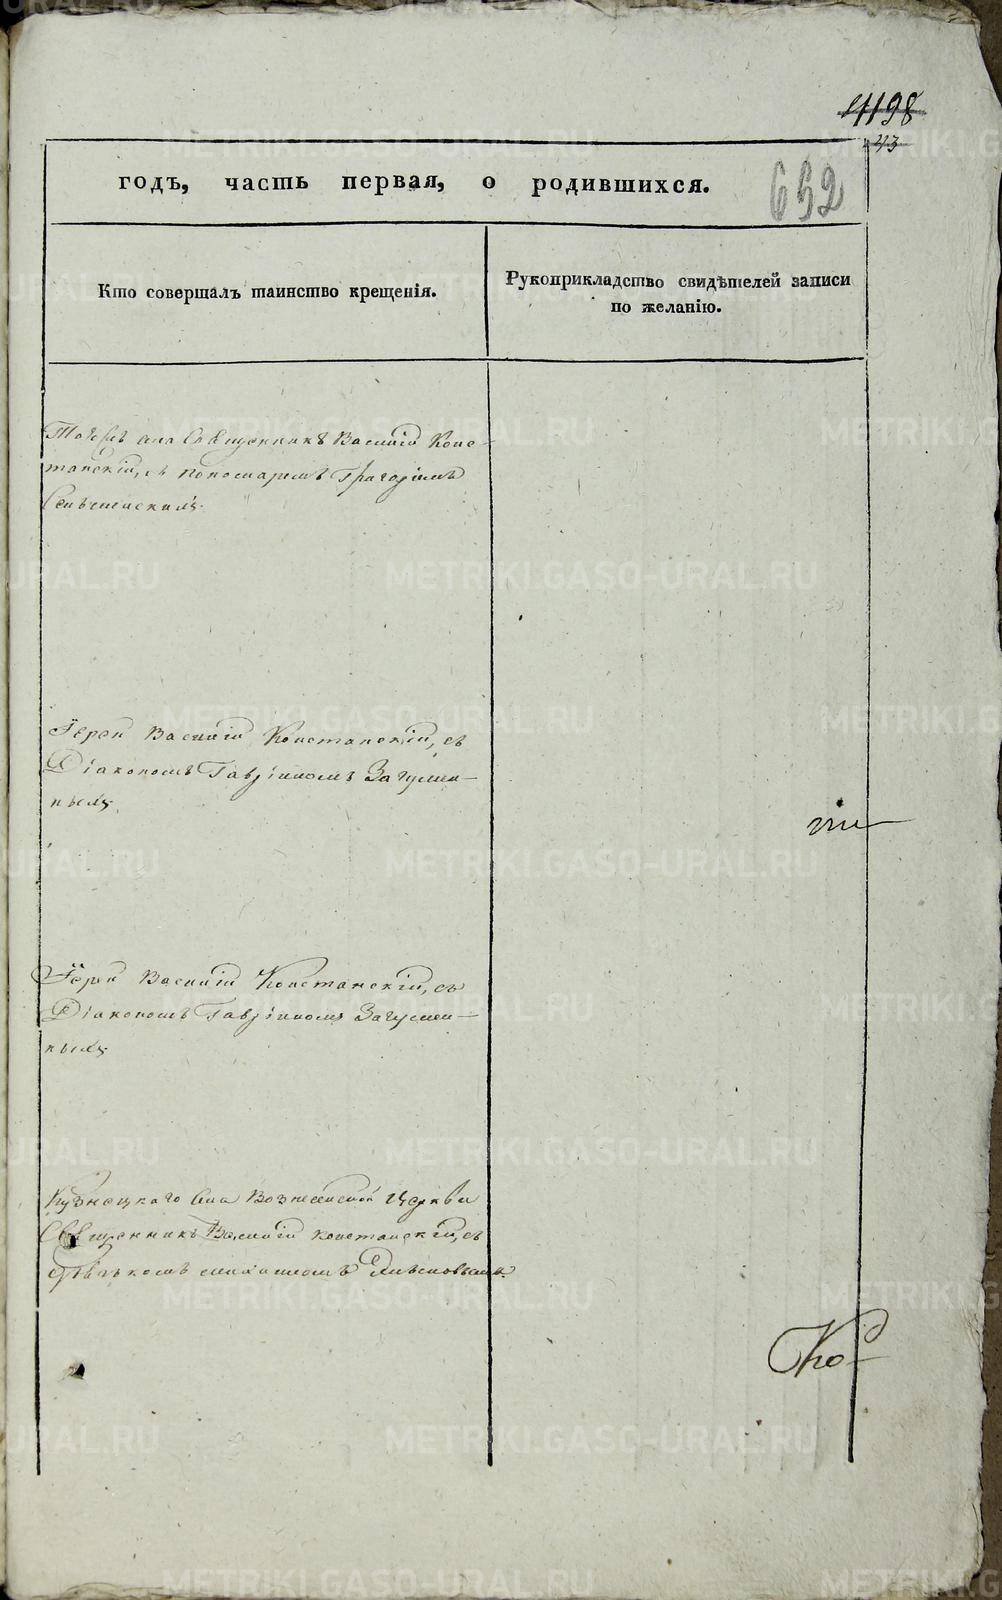 4198
43
годъ, часть первая, о родившихся.
652
Кто совершалъ таинство крещенія.
Рукоприкладство свидѣтелей записи
по желанію.
села Священникъ Василій Конс-
танскій, съ пономаремъ Григоріемъ
Іерей Василій Констанскій, съ
Діакономъ Гавріиломъ Загумен-
нымъ
Іерей Василій Констанскій, съ
Діакономъ Гавріиломъ Загумен-
нымъ
Кузнецкаго села Вознесенской Церкви
Священникъ Василій Констанскій, съ
METRIKI.GASO-URAL.RU